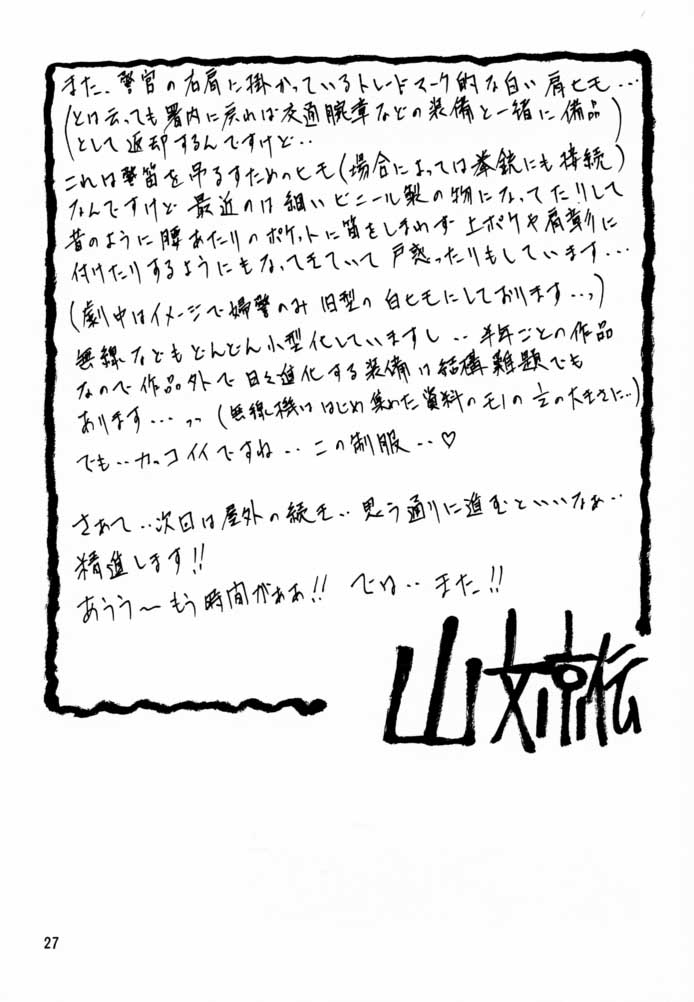 また、警官の右肩に掛かっているトレードマーク的な白い肩ヒモ…
(とは云っても署内に戻れば交通腕章などの装備と一緒に備品
として返却するんですけど‥)
これは警笛を吊るすためのヒモ(場合によっては拳銃にも接続)
なんですけど最近のは細いビニール製の物になってたりして
昔のように腰あたりのポケットに笛をしまわず上ポケや肩章に
付けたりするようにもなってきていて戸惑ったりもしています…
(劇中はイメージで婦警のみ旧型の白ヒモにしております‥っ)
無線などもどんどん小型化していますし‥半年ごとの作品
なので作品外で日々進化する装備は結構難題でも
あります…っっ(無線機ははじめ集めた資料のモノの½の大きさに‥)
でも‥カッコイイですね‥この制服‥♡
さあて‥次回は屋外の続き‥思う通りに進むといいなぁ‥
精進します!!
あうう～もう時間がああ!! では‥また!!
山文京伝
27